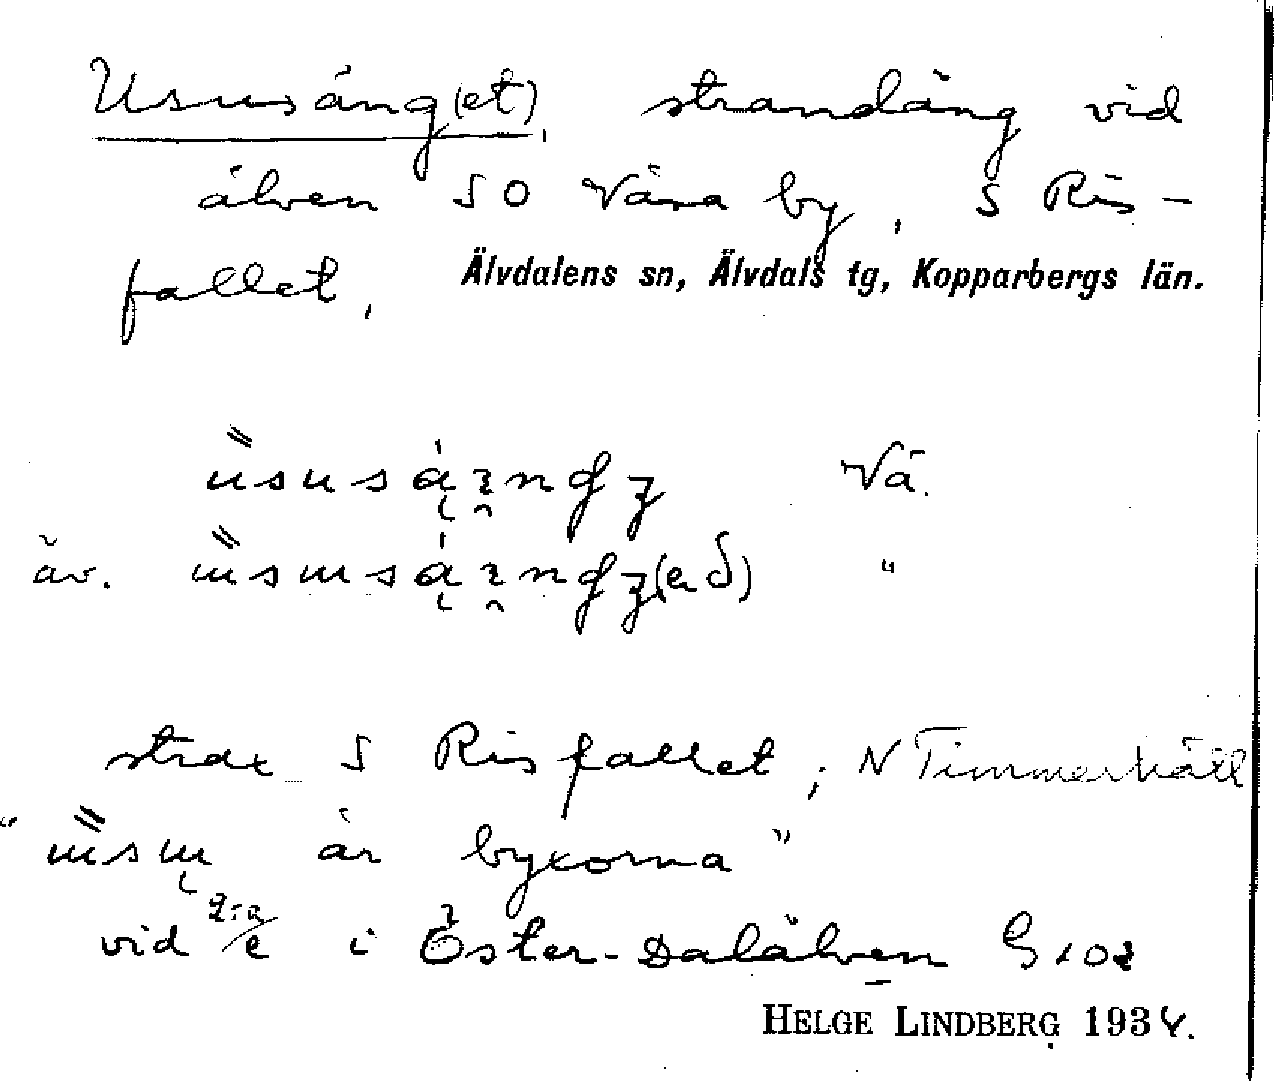 Ususäng(et), strandäng vid
älven SO Våsa by, S Ris-
fallet, Älvdalens sn, Älvdals tg, Kopparbergs län.
Vå.
äv. "
strax S Risfallet; N Timmerhäll
är byxorna"
vid i Öster-Dalälven G102
HELGE LINDBERG 1934.